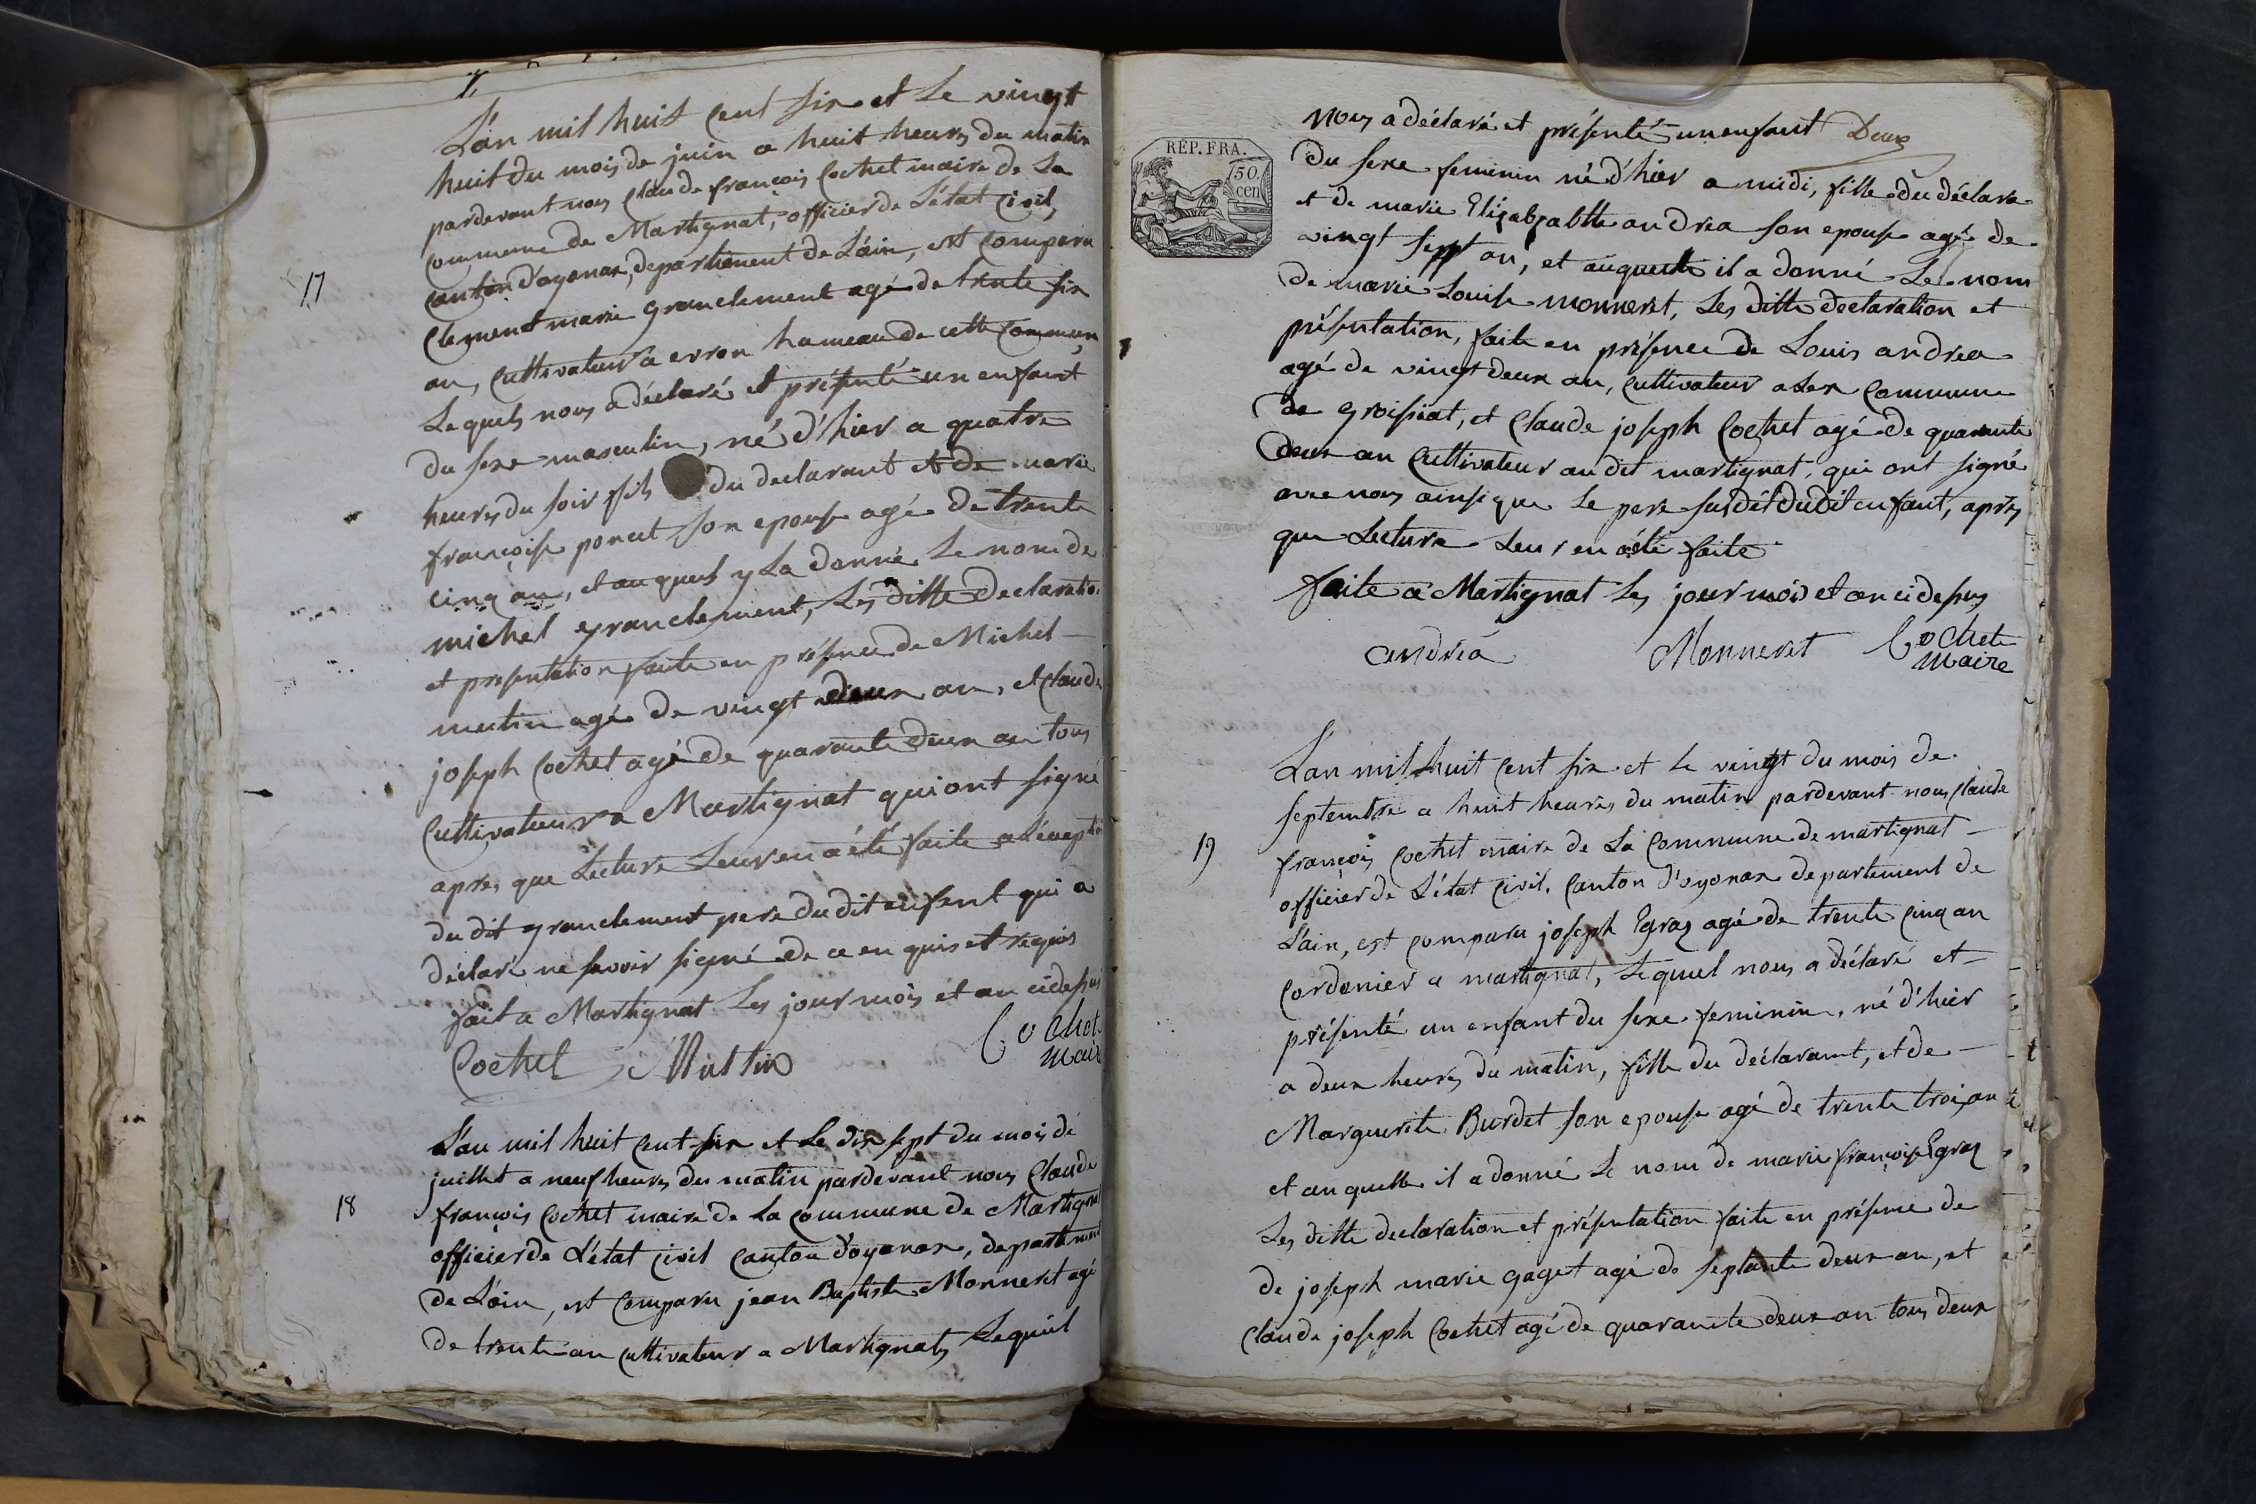 L'an mil huit cent six et le vingt
huit du mois de juin a huit heures du matin
pardevant nous Claude françois Cochet maire de La
commune de Martignat, officier de L'état Civil,
17
canton d'oyonax, departement de L'ain, est comparu
Clement marie granclement agé de trente six
an, cultivateur a evron hameau de cette commune,
Lequels nous a déclaré et présenté un enfant
du sexe masculin, né d'hier a quatre
heures du soir fils du declarant et de marie
françoise poncet son epouse agé de trente
cinq an, et auquel y La donné Le nom de
michel granclement, Les ditte declaratio
et presentation faite en présence de Michel
mutin agé de vingt deux an, et Claude
joseph Cochet agé de quarante deux an tous
Cultivateur a Martignat qui ont signé
apres que Lecture Leur en a été faite a L'exceptio
du dit granclement pere du dit enfant qui a
déclaré ne savoir signé de ce enquis et requis
fait a Martignat Les jour mois et an cidessus
Cochet Muttin Cochet
maire
L'an mil huit cent six et Le dix sept du mois de
juillet a neuf heures du matin pardevant nous Claude
18
françois Cochet maire de La commune de Martignat
officier de L'état Civil canton d'oyonax, departement
de L'ain, est comparu jean Baptiste Monneret agé
de trente an cultivateur a Martignat, Lequel
nous a déclaré et présenté un enfant Deux
RÉP. FRA.
50.
cen
du sexe feminin né d'hier a midi, fille du déclara
et de marie Elizabzabtte andréa son epouse agé de
vingt sept an, et auquelle il a donné Le nom
de marie Louise monneret, Les ditte declaration et
présentation, faite en présence de Louis andréa
agé de vingt deux an, cultivateur a Lex commune
de groissiat, et Claude joseph Cochet agé de quarante
deux an Cultivateur au dit martignat, qui ont signé
avec nous ainsi que Le pere susdit du dit enfant, apres
que Lecture Leur en a été faite
faite a Martignat Les jour mois et an cidessus
andréa Monneret Cochet
maire
L'an mil huit cent six et le vingt du mois de
septembre a huit heures du matin pardevant nous Claude
19
françois Cochet maire de La Commune de martignat
officier de L'état Civil, Canton d'oyonax departement de
L'ain, est comparu joseph Egraz agé de trente cinq an
Cordonier a martignat, Lequel nous a déclaré et
présenté un enfant du sexe feminin, né d'hier
a deux heures du matin, fille du déclarant, et de
Marguerite Burdet son epouse agé de trente trois an
et auquelle il a donné Le nom de marie françoise Egraz
Les ditte declaration et présentation faite en présence de
de joseph marie gaget agé de septante deux an, et
Claude joseph Cochet agé de quarante deux an tous deux